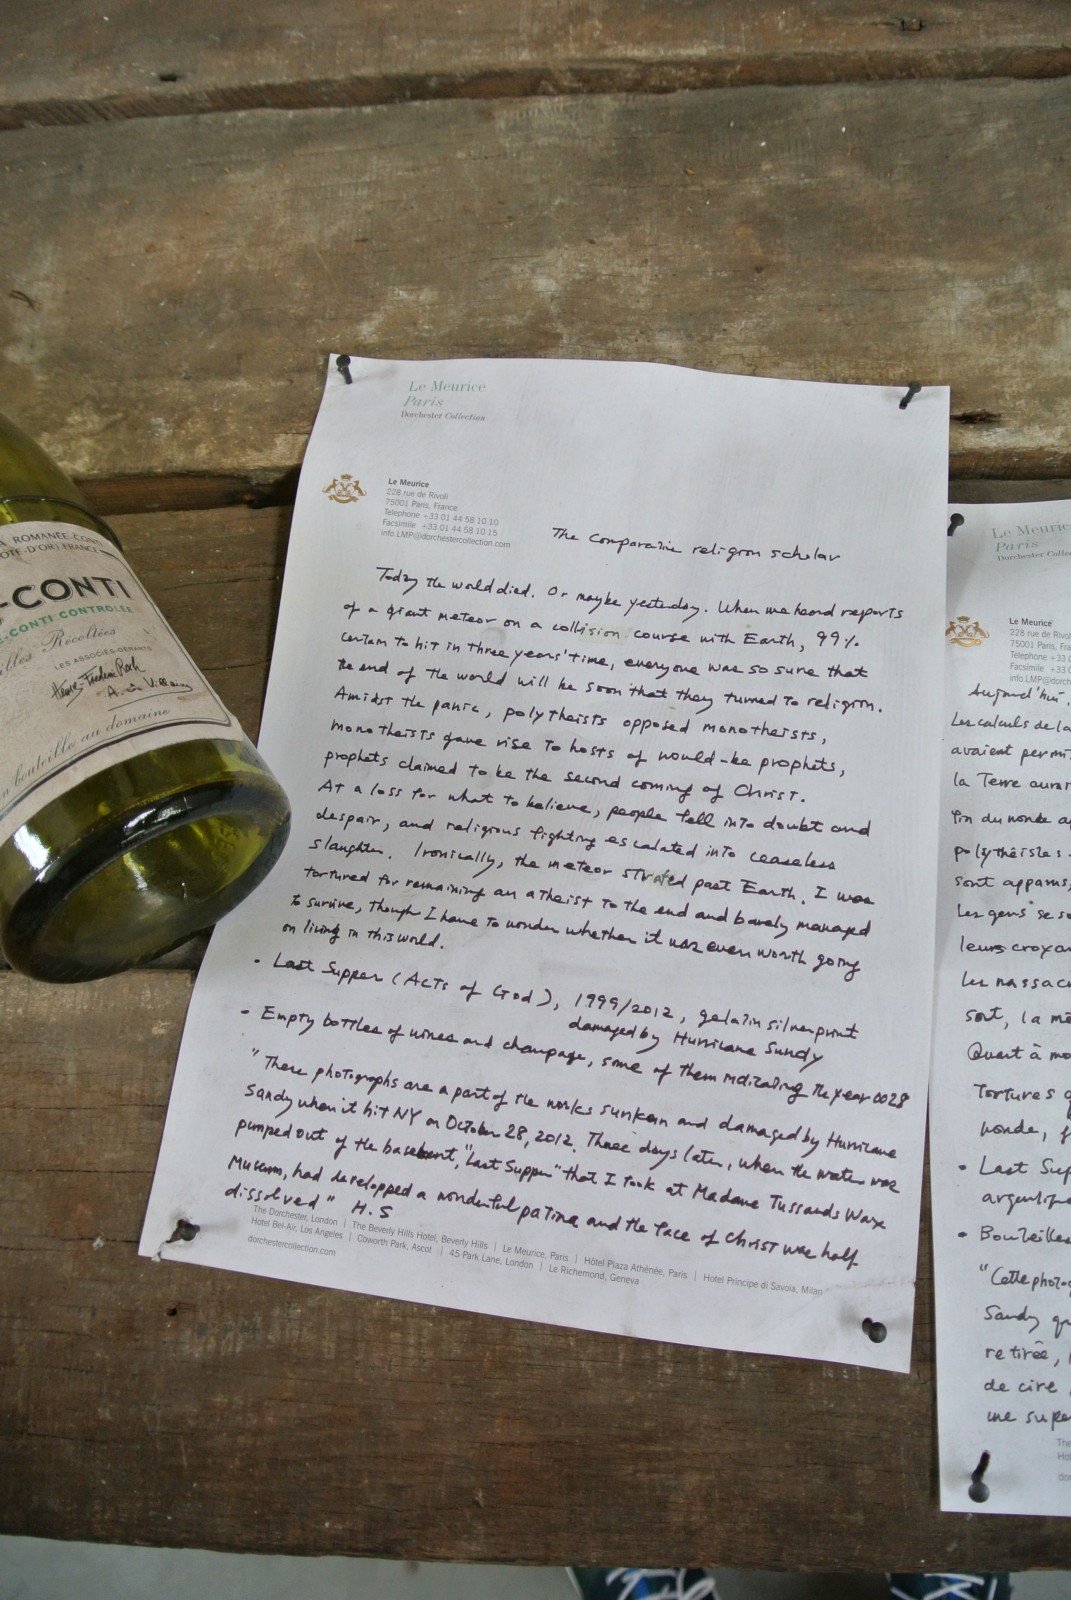 ROMANÉE-CONTI
CÔTE-D'OR FRANCE
-CONTI
-CONTI CONTROLÉE
Récoltées
LES ASSOCIÉS-GÉRANTS
Henry-Frédéric Roch
A. de Villaine
bouteille au domaine
Le Meurice
Paris
Dorchester Collection
Le Meurice
228 rue de Rivoli
75001 Paris, France
Telephone +33 01 44 58 10 10
Facsimile +33 01 44 58 10 15
info.LMP@dorchestercollection.com
The comparative religion scholar
Today the world died. Or maybe yesterday. When we heard reports
of a giant meteor on a collision course with Earth, 99%
certain to hit in three years' time, everyone was so sure that
the end of the world will be soon that they turned to religion.
Amidst the panic, polytheists opposed monotheists,
monotheists gave rise to hosts of would-be prophets,
prophets claimed to be the second coming of Christ.
At a loss for what to believe, people fell into doubt and
despair, and religious fighting escalated into ceaseless
slaughter. Ironically, the meteor past Earth. I was
tortured for remaining an atheist to the end and barely managed
to survive, though I have to wonder whether it was even worth going
on living in this world.
• Last Supper (Acts of God), 1999/2012, gelatin silver print
damaged by Hurricane Sundy
• Empty bottles of wines and champage, some of them indicating the year 0028
"These photographs are a part of the works sunken and damaged by Hurricane
Sandy when it hit NY on October 28, 2012. Three days later, when the water was
pumped out of the basement, "Last Supper" that I took at Madame Tussauds Wax
Museum, had developped a wonderful patina and the face of Christ was half
dissolved" H.S
The Dorchester, London | The Beverly Hills Hotel, Beverly Hills | Le Meurice, Paris | Hôtel Plaza Athénée, Paris | Hotel Principe di Savoia, Milan
Hotel Bel-Air, Los Angeles | Coworth Park, Ascot | 45 Park Lane, London | Le Richemond, Geneva
dorchestercollection.com
Le Meurice
Paris
Dorchester
Le Meurice
228 rue de
75001 Paris, F
Telephone +33 0
Facsimile +33
info.LMP@dorch
Aujourd'hui,
Les calculs de la
avaient permi
la Terre aurai
fin du monde
polythéistes
sont apparus,
Les gens se so
leurs croyan
les massac
sort, la mê
Quant à mo
Tortures
monde, f
• Last Sup
argentique
• Bouteilles
"Cette photog
Sandy qu
retirée,
de cire
une super
The
Hot
dor